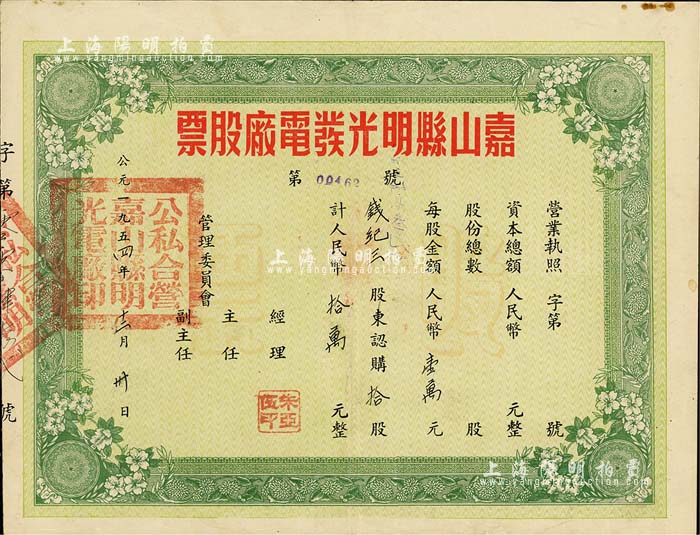 嘉山縣明光發電廠股票
第00462號
營業執照 字第 號
資本總額 人民幣 元整
股份總數 股
每股金額 人民幣 壹萬 元
錢紀 股東認購 拾 股
計人民幣 拾萬 元整
經理
管理委員會
主任
副主任
公元一九五四年 十二月 卅日
公私合營
嘉山縣明
光電廠印
字第 號
上海陽明拍賣
www.yangmingauction.com
上海陽明拍賣
www.yangmingauction.com
上海陽明拍賣
www.yangmingauction.com
上海陽明拍賣
www.yangmingauction.com